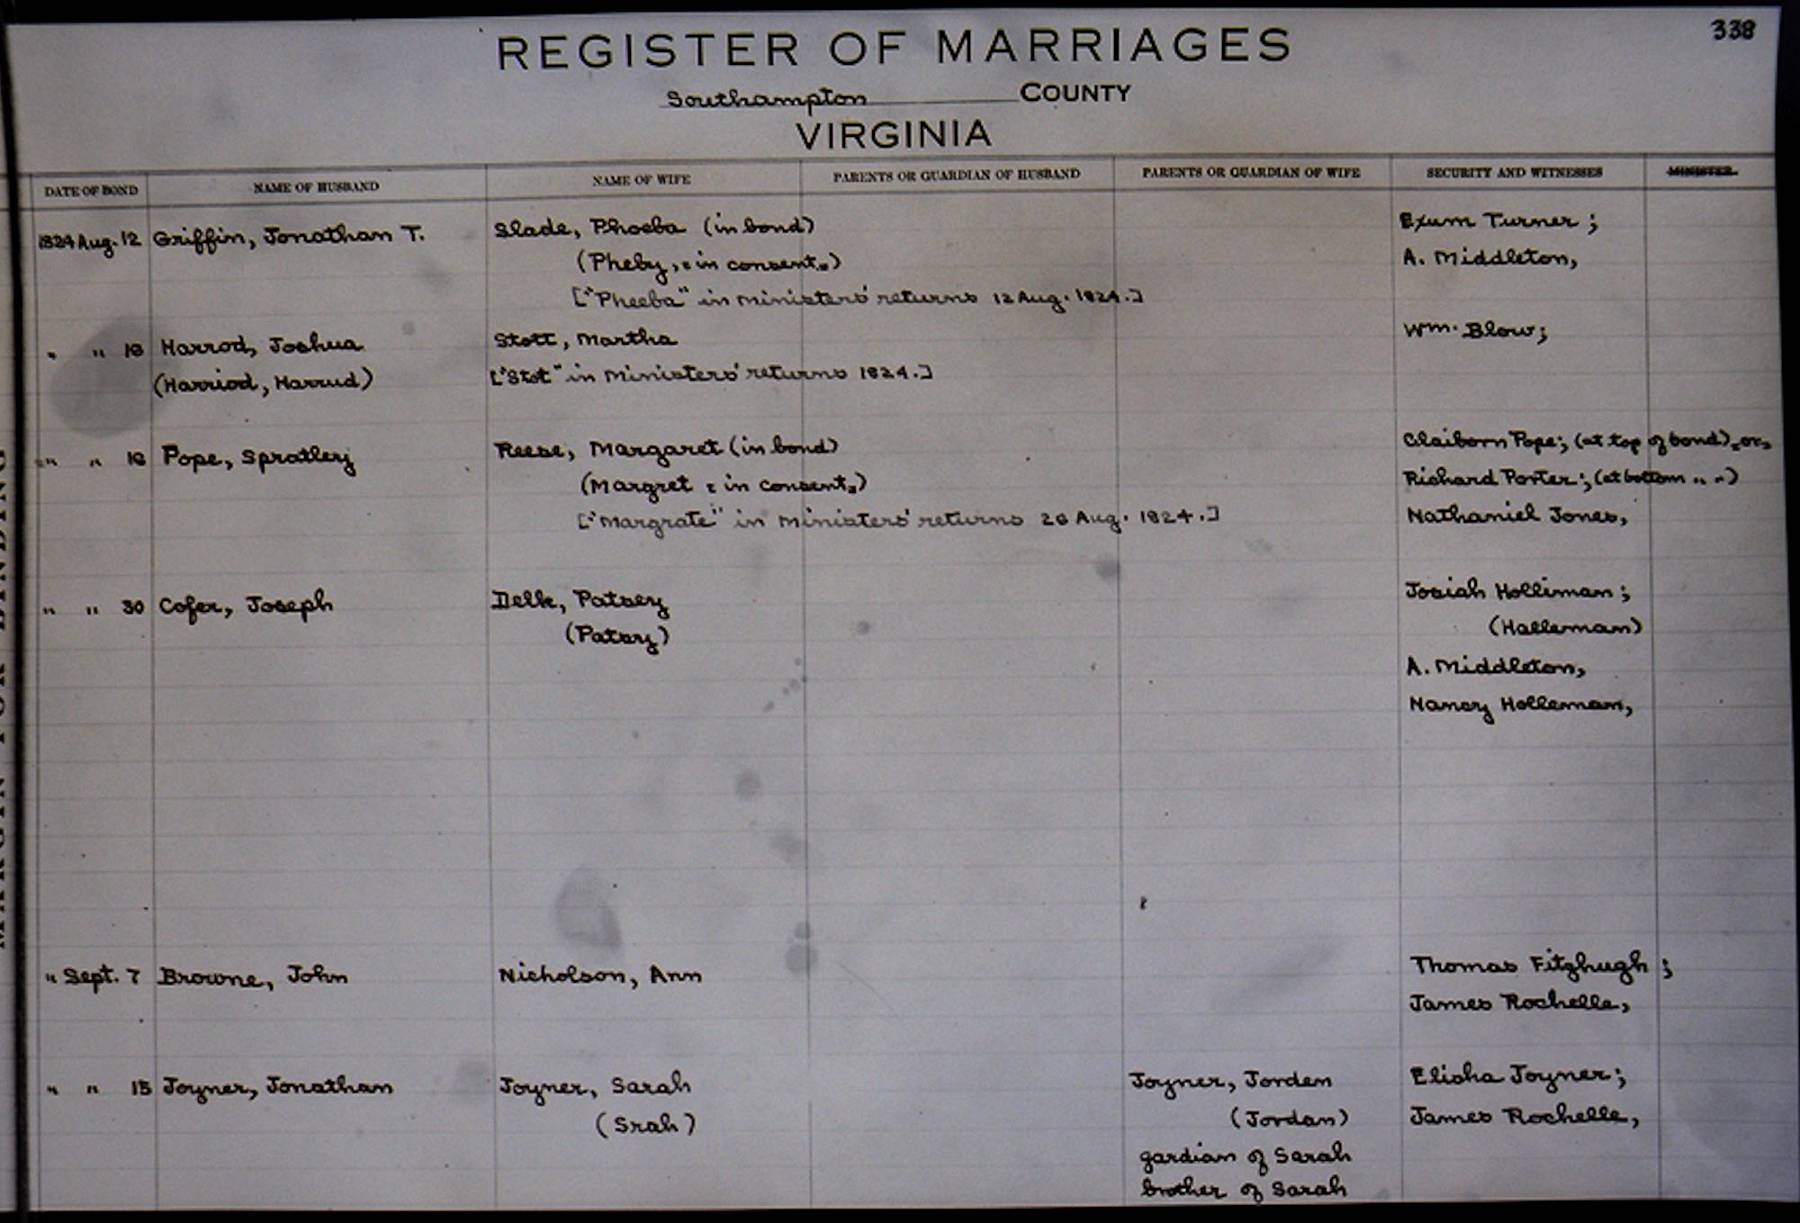 338
REGISTER OF MARRIAGES
Southampton COUNTY
VIRGINIA
DATE OF BOND NAME OF HUSBAND NAME OF WIFE PARENTS OR GUARDIAN OF HUSBAND PARENTS OR GUARDIAN OF WIFE SECURITY AND WITNESSES MINISTER.
1824 Aug. 12 Griffin, Jonathan T. Slade, Phoeba (in bond) Exum Turner ;
(Pheby, " in consent ") A. Middleton,
["Pheeba" in ministers' returns 12 Aug. 1824.]
" " 16 Harrod, Joshua Stott, Martha Wm. Blow;
(Harriod, Harrud) ["Stot" in ministers' returns 1824.]
" " 16 Pope, Spratley Reese, Margaret (in bond) Claiborn Pope; (at top of bond) or
(Margret " in consent ") Richard Porter; (at bottom " ")
["Margrate" in ministers' returns 26 Aug. 1824.] Nathaniel Jones,
" " 30 Cofer, Joseph Delk, Patsey Josiah Holliman ;
(Patsy) (Halleman)
A. Middleton,
Nancy Holleman,
" Sept. 7 Browne, John Nicholson, Ann Thomas Fitzhugh ;
James Rochelle,
" " 15 Joyner, Jonathan Joyner, Sarah Joyner, Jorden Elisha Joyner ;
(Srah) (Jordan) James Rochelle,
gardian of Sarah
brother of Sarah
MARGIN FOR BINDING